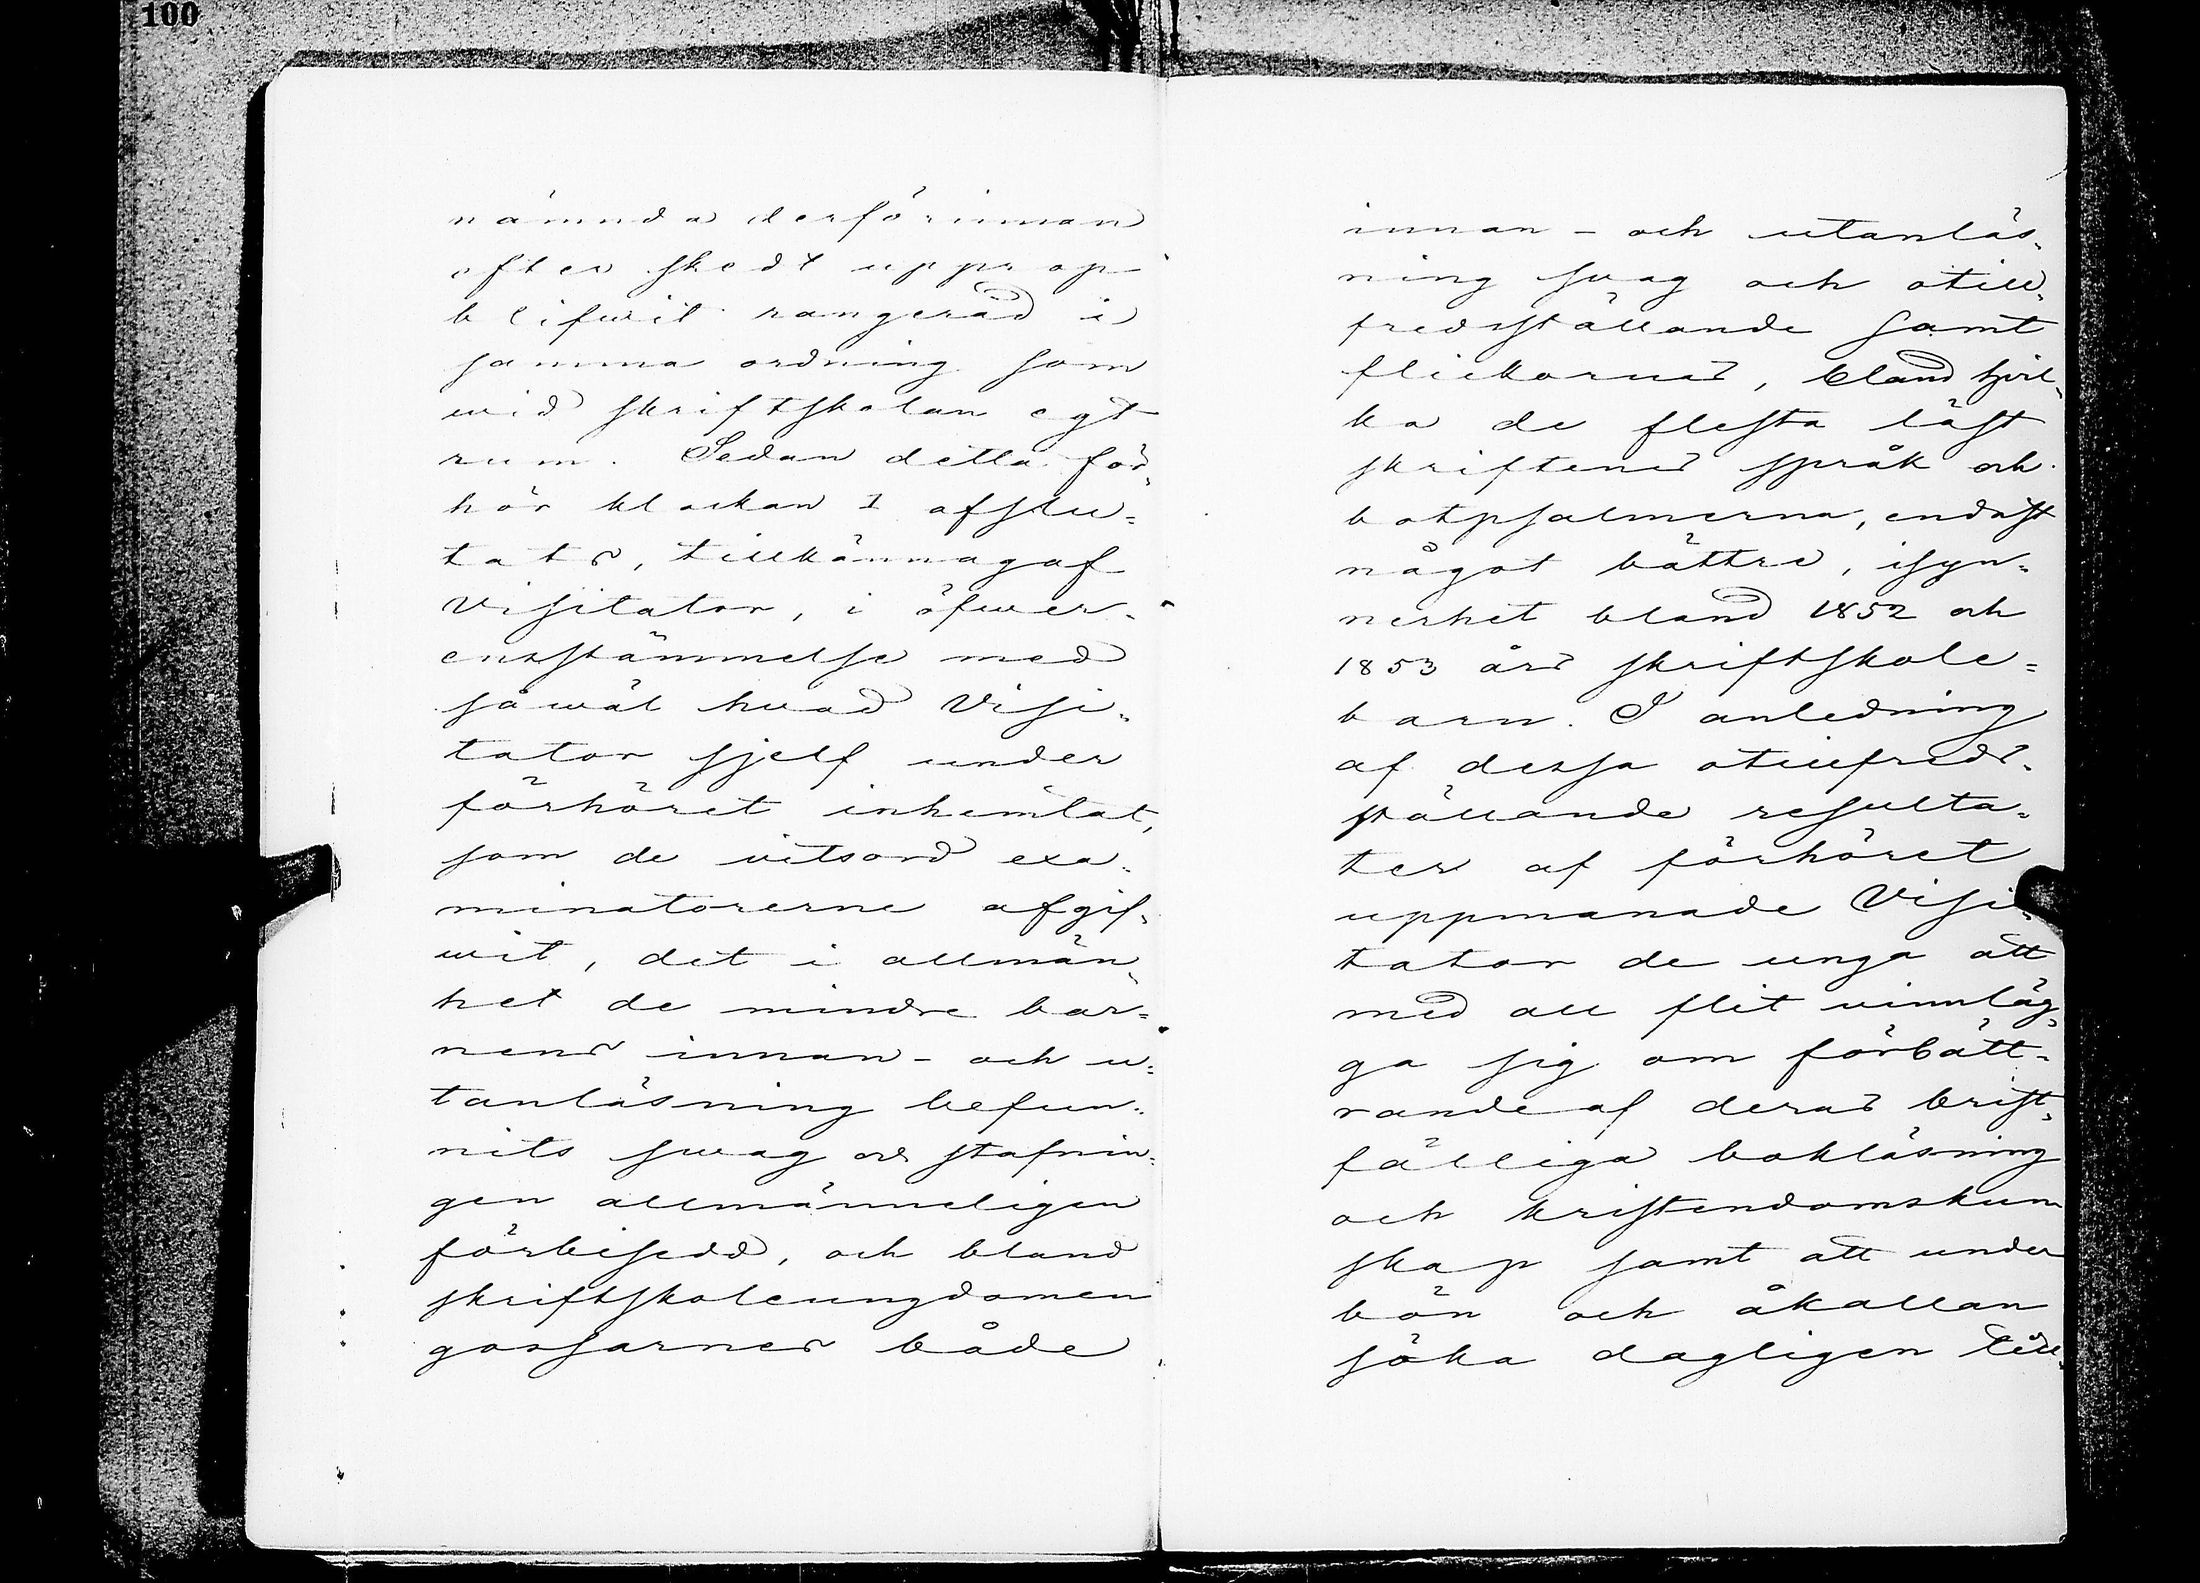 100
nämnda derförinnan
efter skedt upprop
blifwit rangerad i
samma ordning som
wid skriftskolan egt
rum. Sedan detta för-
hör klockan 1 afslu-
tats, tillkännagaf
Visitator, i öfwer-
ensstämmelse med
såwäl hvad Visi-
tator sjelf under
förhöret inhemtat,
som de vitsord exa-
minatorerne afgif-
wit, det i allmän-
het de mindre bar-
nens innan- och u-
tanläsning befun-
nits swag och stafnin-
gen allmänneligen
förbisedd, och bland
skriftskoleungdomen
gossarnes både
innan- och utanläs-
ning svag och otill-
fredsställande samt
flickornes, bland hvil-
ka de flesta läst
skriftenes språk och
botpsalmerna, endast
något bättre, isyn-
nerhet bland 1852 och
1853 års skriftskole-
barn. I anledning
af dessa otillfreds-
ställande resulta-
ter af förhöret
uppmanade Visi-
tator de unga att
med all flit vinnläg-
ga sig om förbätt-
rande af deras brist-
fälliga bokläsning
och kristendomskun
skap samt att under
bön och åkallan
söka dagligen till-